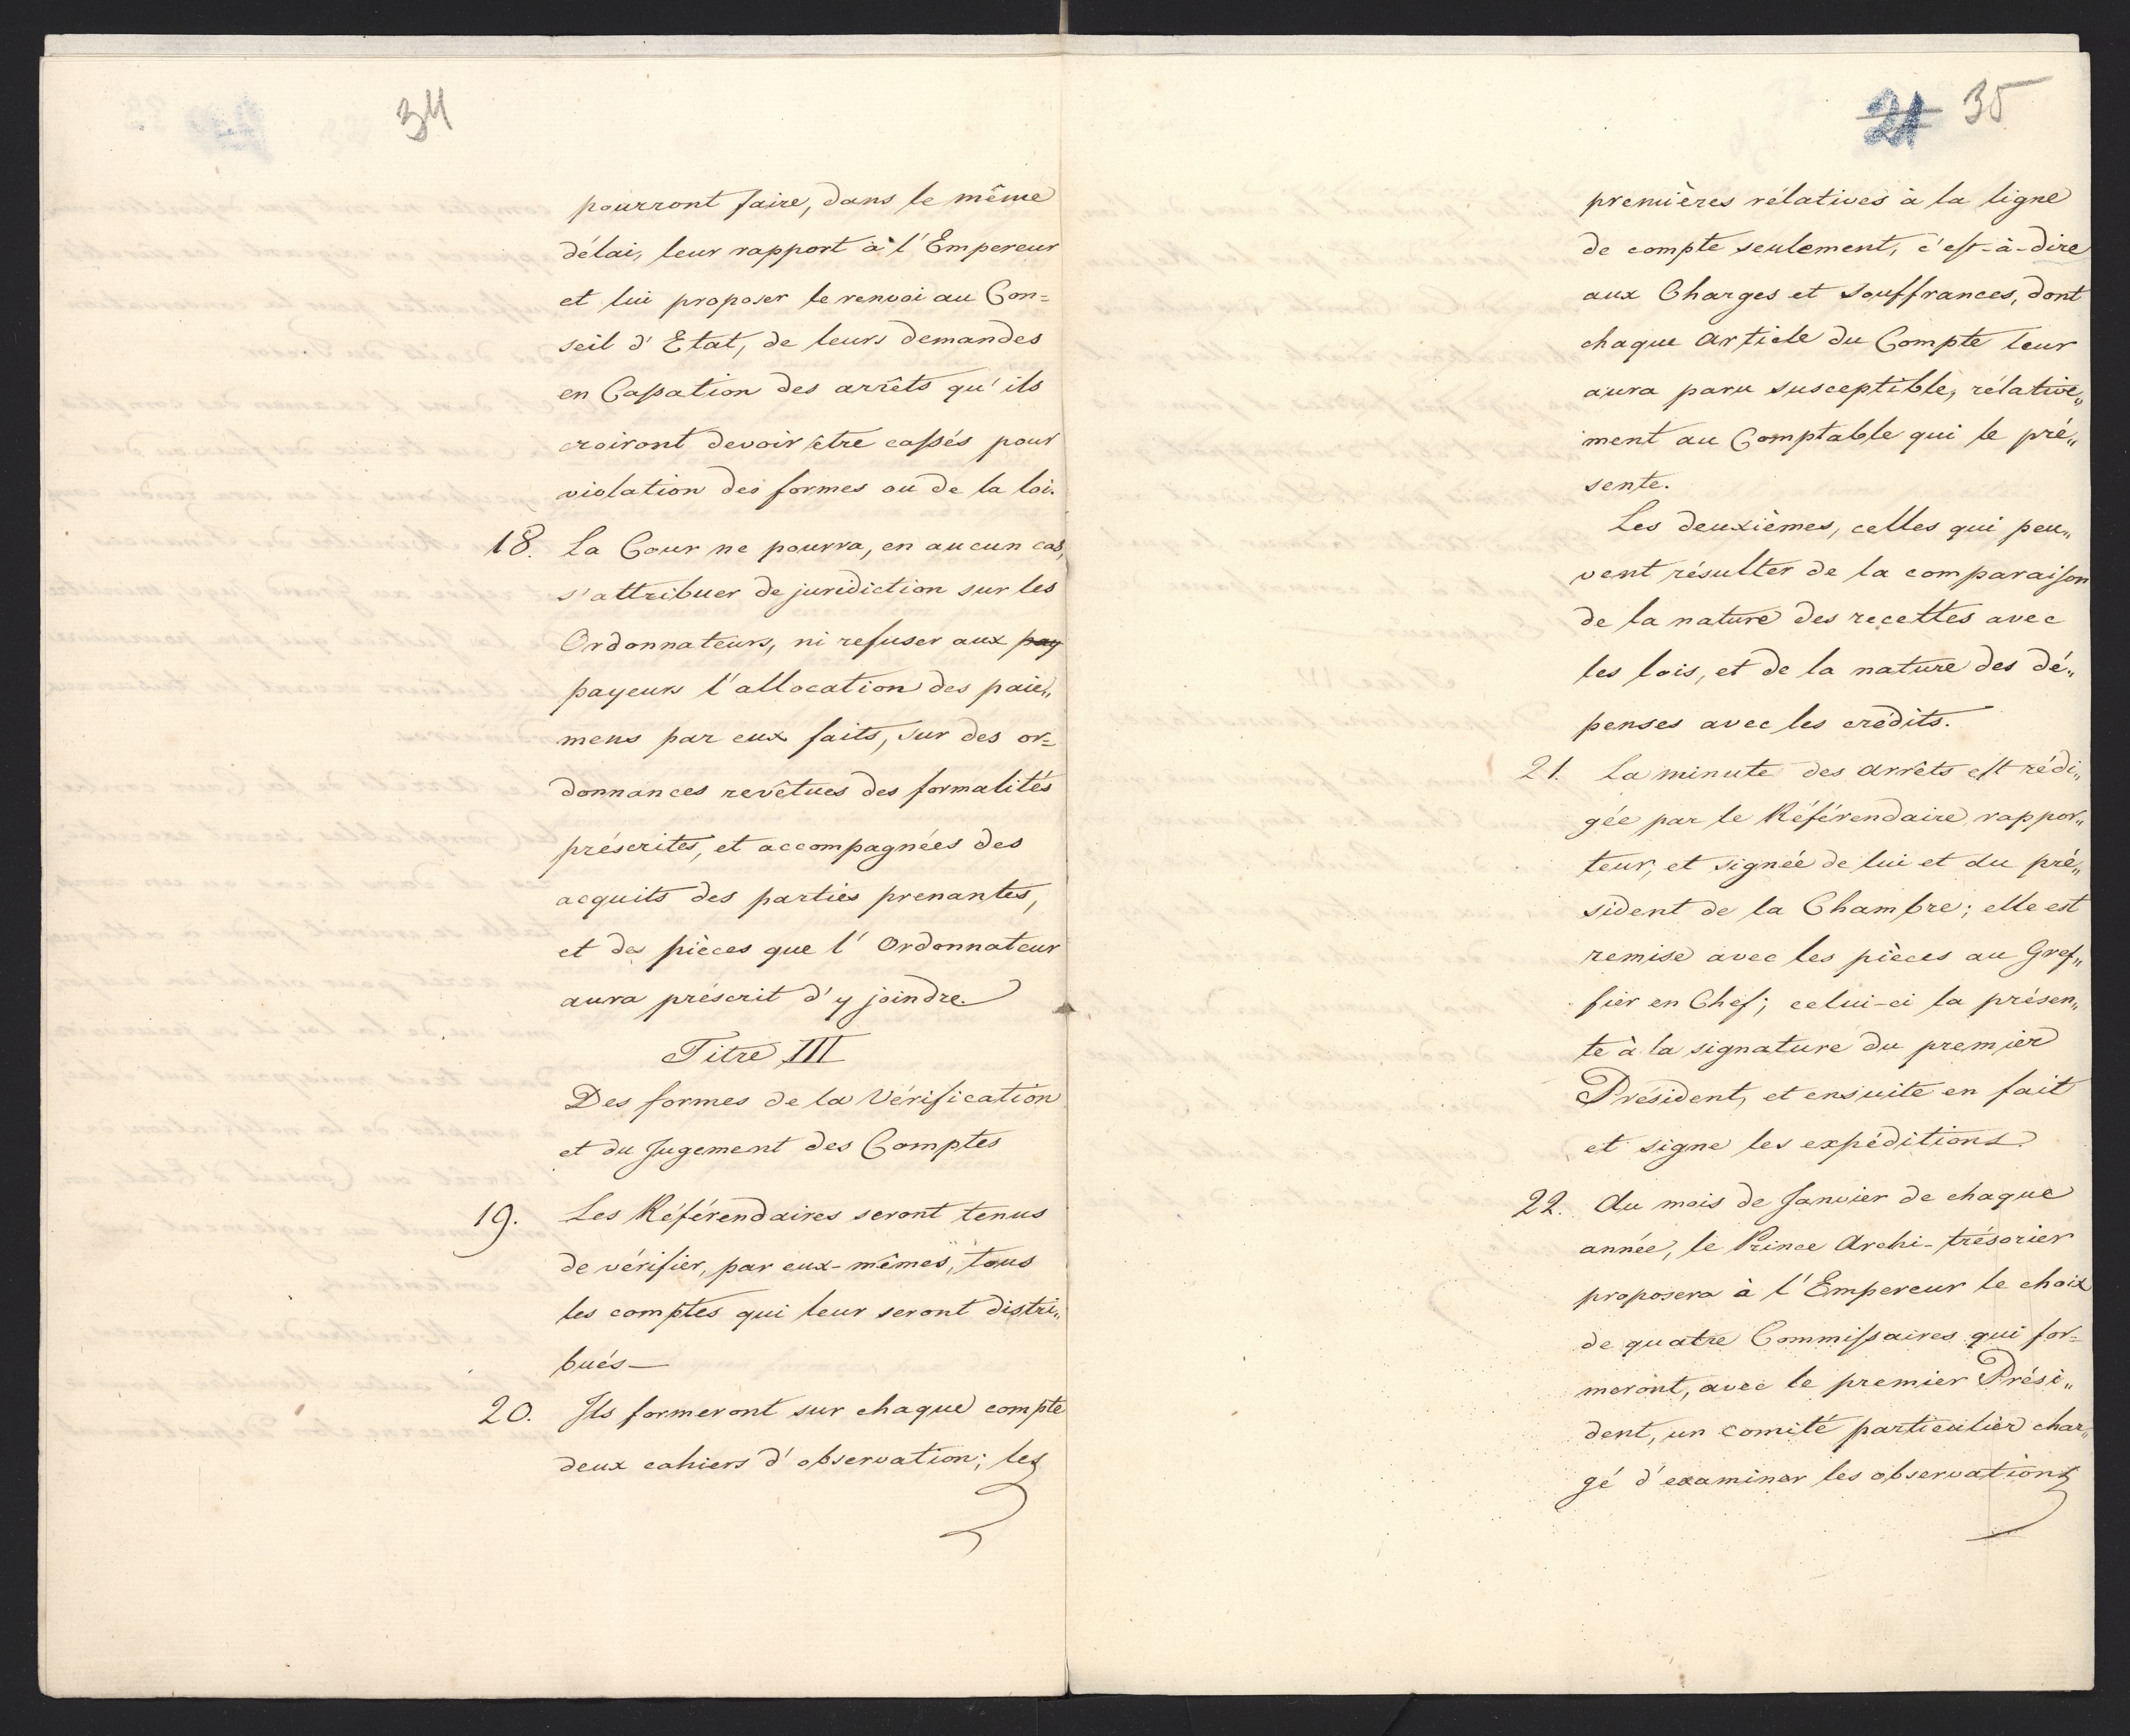 34
pourront faire, dans le même
délai, leur rapport à l'Empereur
et lui proposer le renvoi au Con=
seil d'Etat, de leurs demandes
en Cassation des arrêts qu'ils
croiront devoir être cassés pour
violation des formes ou de la loi.
18. La Cour ne pourra, en aucun cas,
s'attribuer de juridiction sur les
Ordonnateurs, ni refuser aux pay
payeurs l'allocation des paie„
mens par eux faits, sur des or=
donnances revêtues des formalités
préscrites, et accompagnées des
acquits des parties prenantes,
et des pièces que l'Ordonnateur
aura préscrit d'y joindre.
Titre III
Des formes de la Vérification
et du Jugement des Comptes
19. Les Référendaires seront tenus
de vérifier, par eux-mêmes, tous
les comptes qui leur seront distri„
bués—
20. Ils formeront sur chaque compte
deux cahiers d'observation; les
21 35
premières rélatives à la ligne
de compte seulement, c'est-à-dire
aux Charges et souffrances, dont
chaque Article du Compte leur
aura paru susceptible, rélative„
ment au Comptable qui le pré„
sente.
Les deuxièmes, celles qui peu„
vent résulter de la comparaison
de la nature des recettes avec
les lois, et de la nature des dé„
penses avec les crédits.
21. La minute des Arrêts est rédi„
gée par le Référendaire rappor„
teur, et signée de lui et du pré„
sident de la Chambre; elle est
remise avec les pièces au Gref„
fier en Chef; celui-ci la présen„
te à la signature du premier
Président, et ensuite en fait
et signe les expéditions.
22. Au mois de Janvier de chaque
année, le Prince Archi-trésorier
proposera à l'Empereur le choix
de quatre Commissaires qui for=
meront, avec le premier Prési„
dent, un comité particulier char„
gé d'examiner les observations